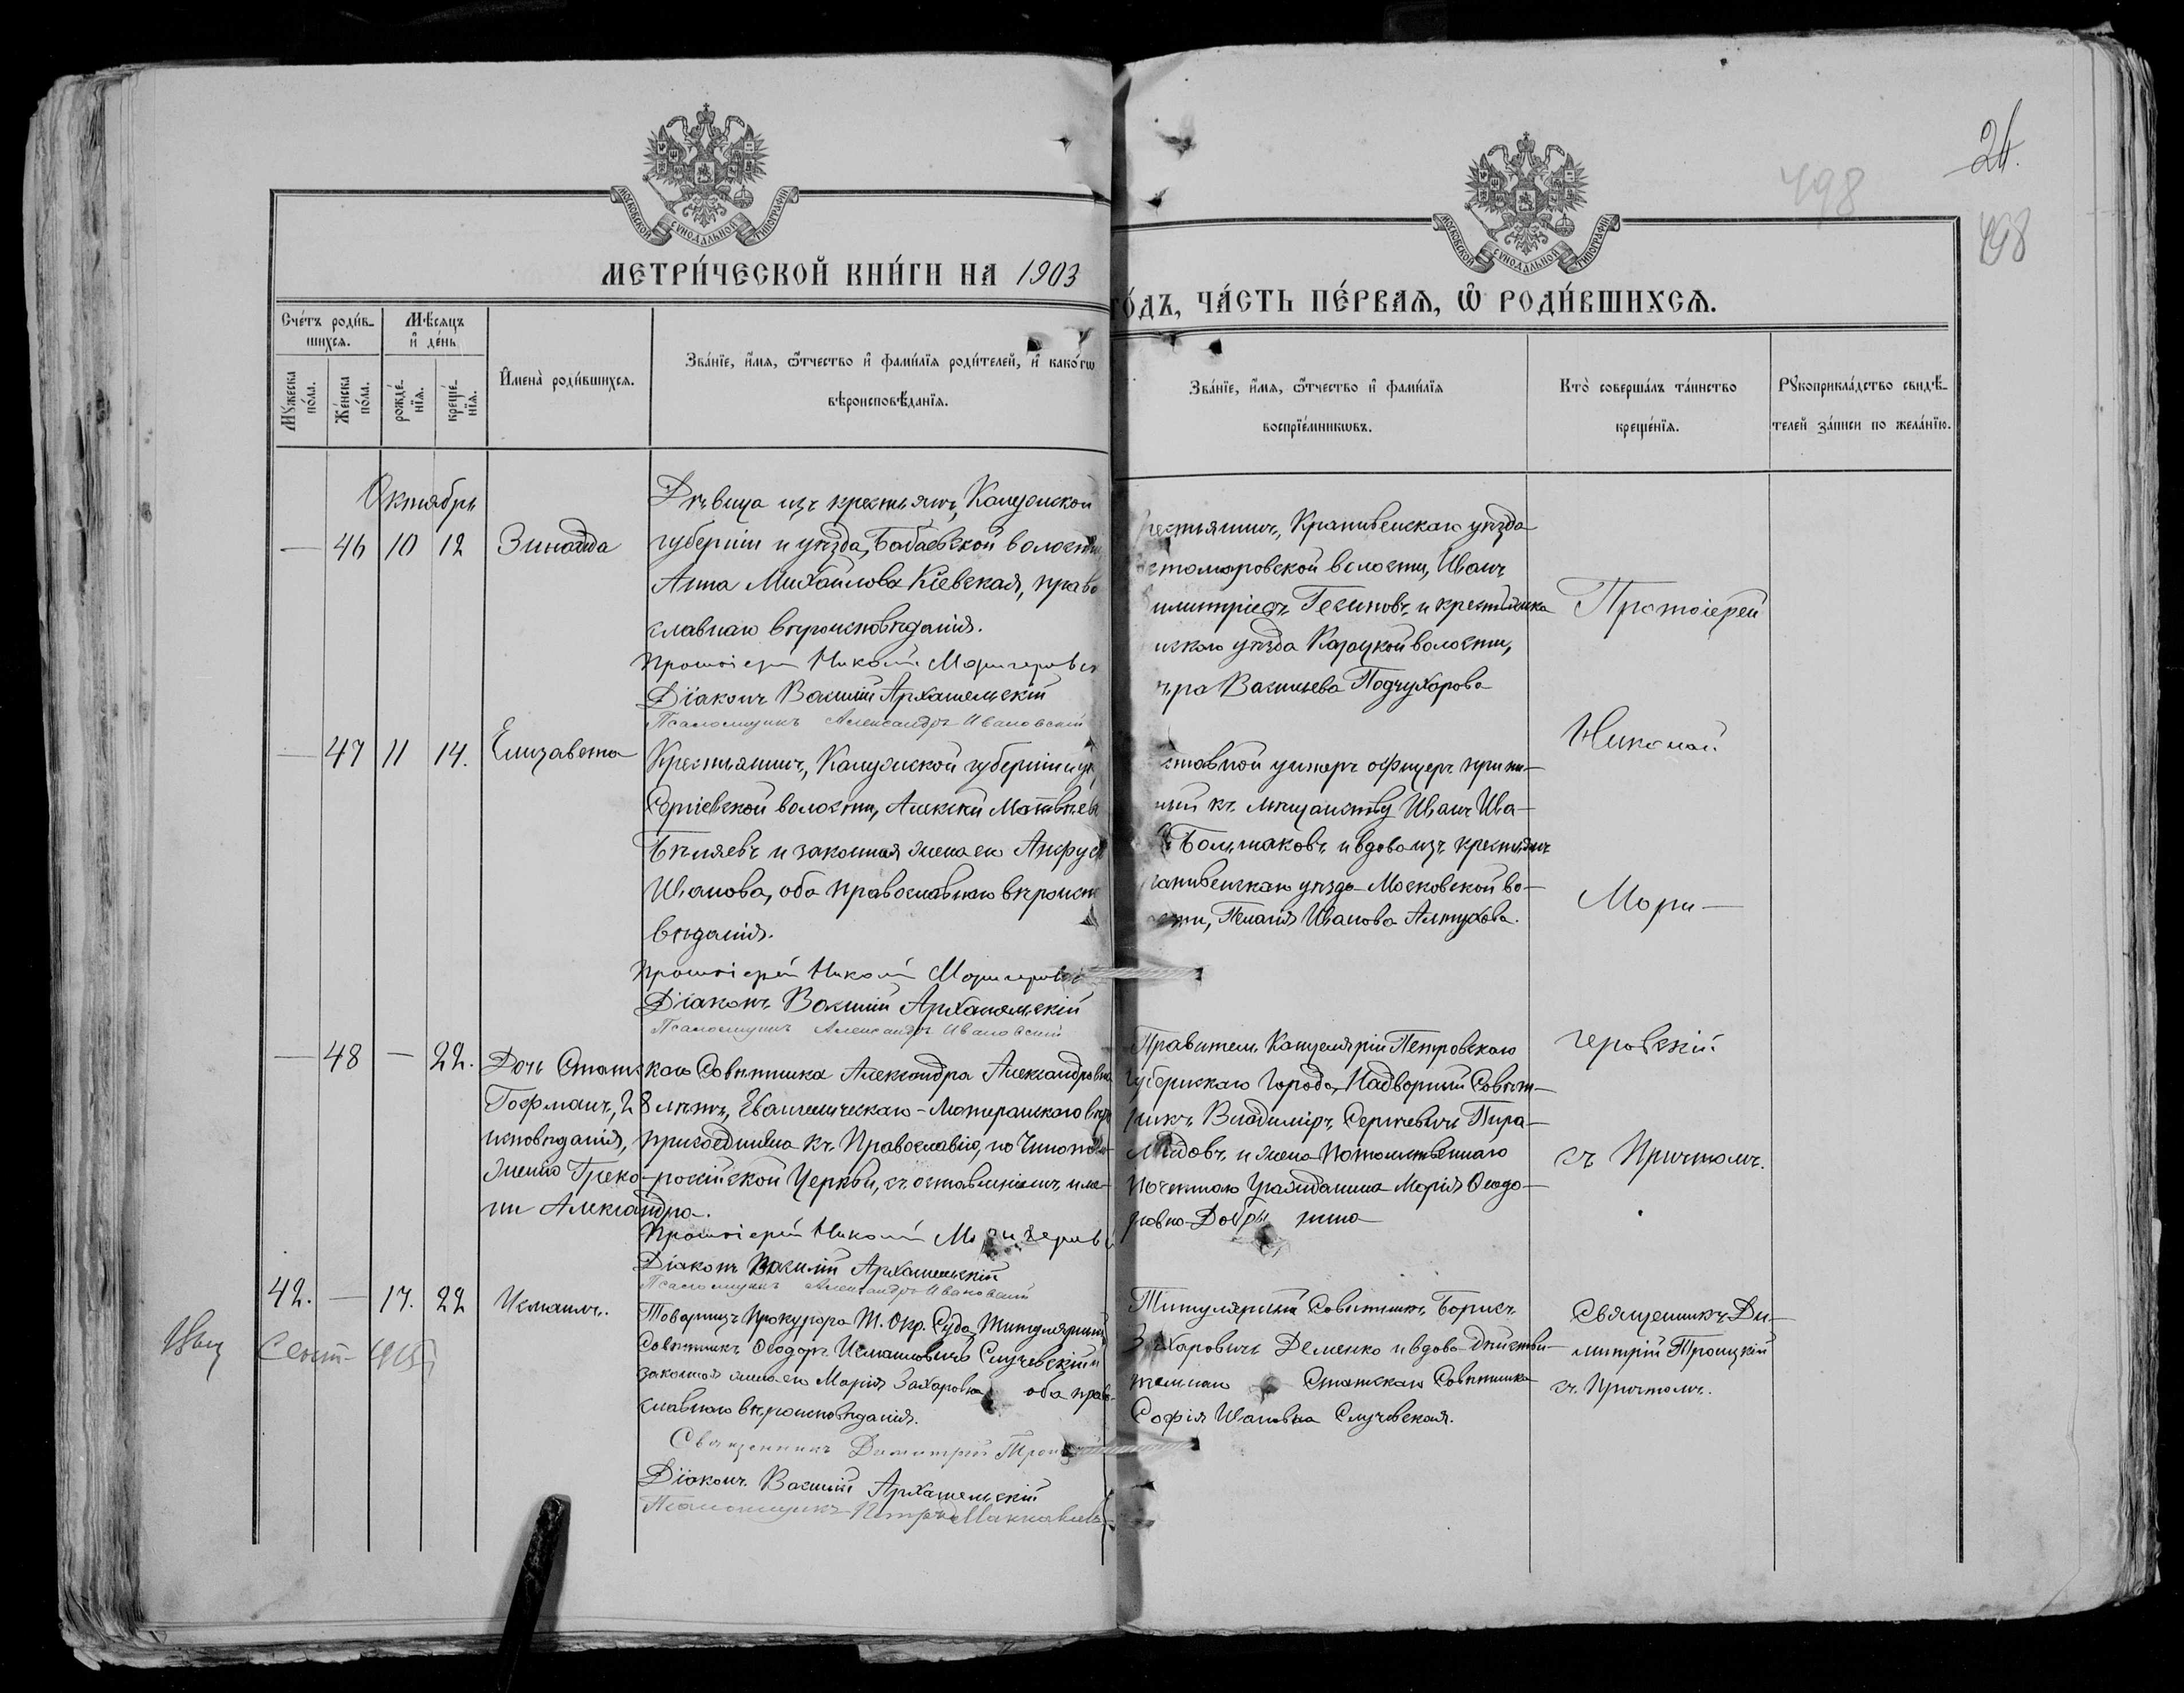 24.
498
498
МОСКОВСКОЙ СѴНОДАЛЬНОЙ ТИПОГРАФІИ
МОСКОВСКОЙ СѴНОДАЛЬНОЙ ТИПОГРАФІИ
МЕТРИ́ЧЕСКОЙ КНИ́ГИ НА 1903
ГО́ДЪ, ЧА́СТЬ ПЕ́РВАЯ, Ѡ РОДИ́ВШИХСЯ.
Сче́тъ роди́в-
шихся.
Мѣ́сяцъ
и҆ де́нь
Мꙋ́жеска по́ла.
Же́нска по́ла.
рожде́-
нїя.
креще́-
нїя.
И҆мена̀ роди́вшихся.
Зва́нїе, и҆́мя, ѻ҆́тчество и҆ фами́лїя роди́телей, и҆ како́гѡ
вѣроисповѣ́данїя.
Зва́нїе, и҆́мя, ѻ҆́тчество и҆ фами́лїя
воспрїе́мникѡвъ.
Кто̀ соверша́лъ та́инство
креще́нїя.
Рꙋкоприкла́дство свидѣ́-
телей за́писи по жела́нїю.
Октябрь
— 46 10 12 Зинаида
Дѣвица изъ крестьянъ, Калужской
губерніи и уѣзда, Бабаевской волости
Анна Михайлова Кіевская, право
славнаго вѣроисповѣданія.
Протоіерей Николай Маригеровск
Діаконъ Василій Архангельскій
Псаломщикъ Александръ Ивановскій
рестьянинъ, Крапивенскаго уѣзда
стомаровской волости, Иванъ
имитріевъ Гесиновъ и крестьянка
нскаго уѣзда Карацкой волости,
ѣра Васильева Подчухарова
Протоіерей
Николай
Мари—
геровскій
съ Причтомъ.
— 47 11 14. Елизавета
Крестьянинъ, Калужской губерніи и уѣ
Сергіевской волости, Алексѣй Матвѣевъ
Бѣляевъ и законная жена его Анфуса
Иванова, оба православнаго вѣроиспо
вѣданія.
Протоіерей Николай Маригеровск
Діаконъ Василій Архангельскій
Псаломщикъ Александръ Ивановскій
ставной унтеръ офицеръ припи—
ный къ мѣщанству Иванъ Ива—
Большаковъ и вдова изъ крестьянъ
рапивенскаго уѣзда Московской во—
сти, Пелагія Иванова Алтухова.
— 48 — 22.
Дочь Статскаго Совѣтника Александра Александровна
Гофманъ, 28 лѣтъ, Евангелическаго-Лютеранскаго вѣро
исповѣданія, присоединена къ Православію, по Чиноположенію
Греко-россійской Церкви, съ оставленіемъ име—
ни Александра.
Протоіерей Николай Маригеровс
Діаконъ Василій Архангельскій
Псаломщикъ Александръ Ивановскій
Правитель Канцеляріи Петровскаго
Губернскаго Города, Надворный Совѣт—
никъ Владиміръ Сергѣевичъ Пира—
мидовъ и жена потомственнаго
почетнаго Гражданина Марія Ѳеодо—
ровна Добрынина
42. — 17. 22 Исмаилъ.
Товарищъ Прокурора Т. Окр. Суда, Титулярный
Совѣтникъ Ѳеодоръ Исмаиловичъ Случевскій и
законная жена его Марія Захаровна оба право-
славнаго вѣроисповѣданія.
Священникъ Димитрій Троиц
Діаконъ Василій Архангельскій
Псаломщикъ Петръ Маккавеевъ
Титулярный Совѣтникъ Борисъ
Захаровичъ Деменко и вдова дѣйстви—
тельнаго Статскаго Совѣтника
Софія Ивановна Случевская.
Священникъ Ди—
митрій Троицкій
съ Причтомъ.